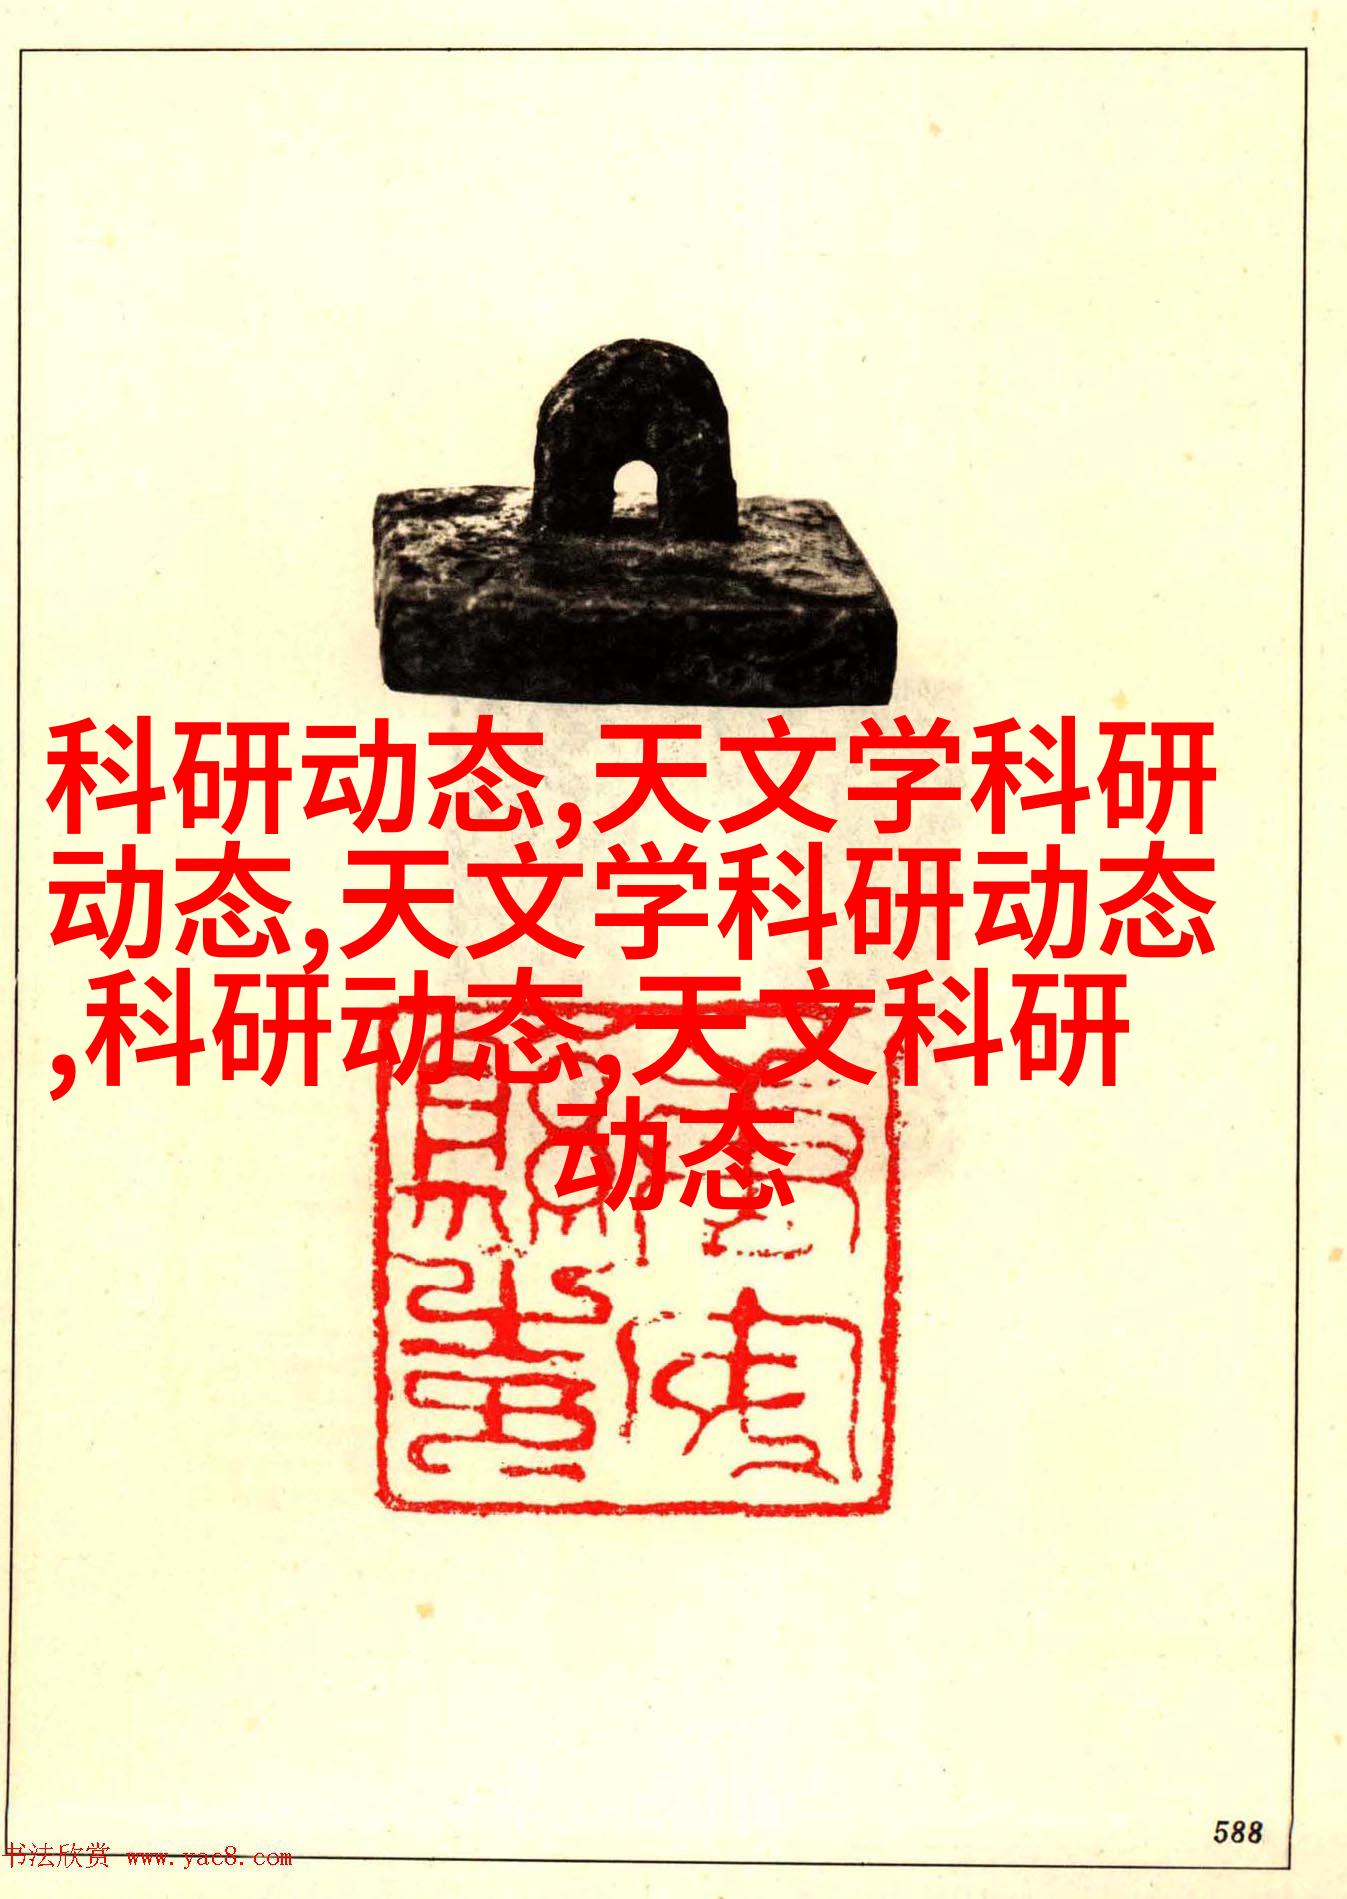 科研动态,天文学科研
动态,天文学科研动态
,科研动态,天文科研
动态
588
书法欣赏 www.yac8.com